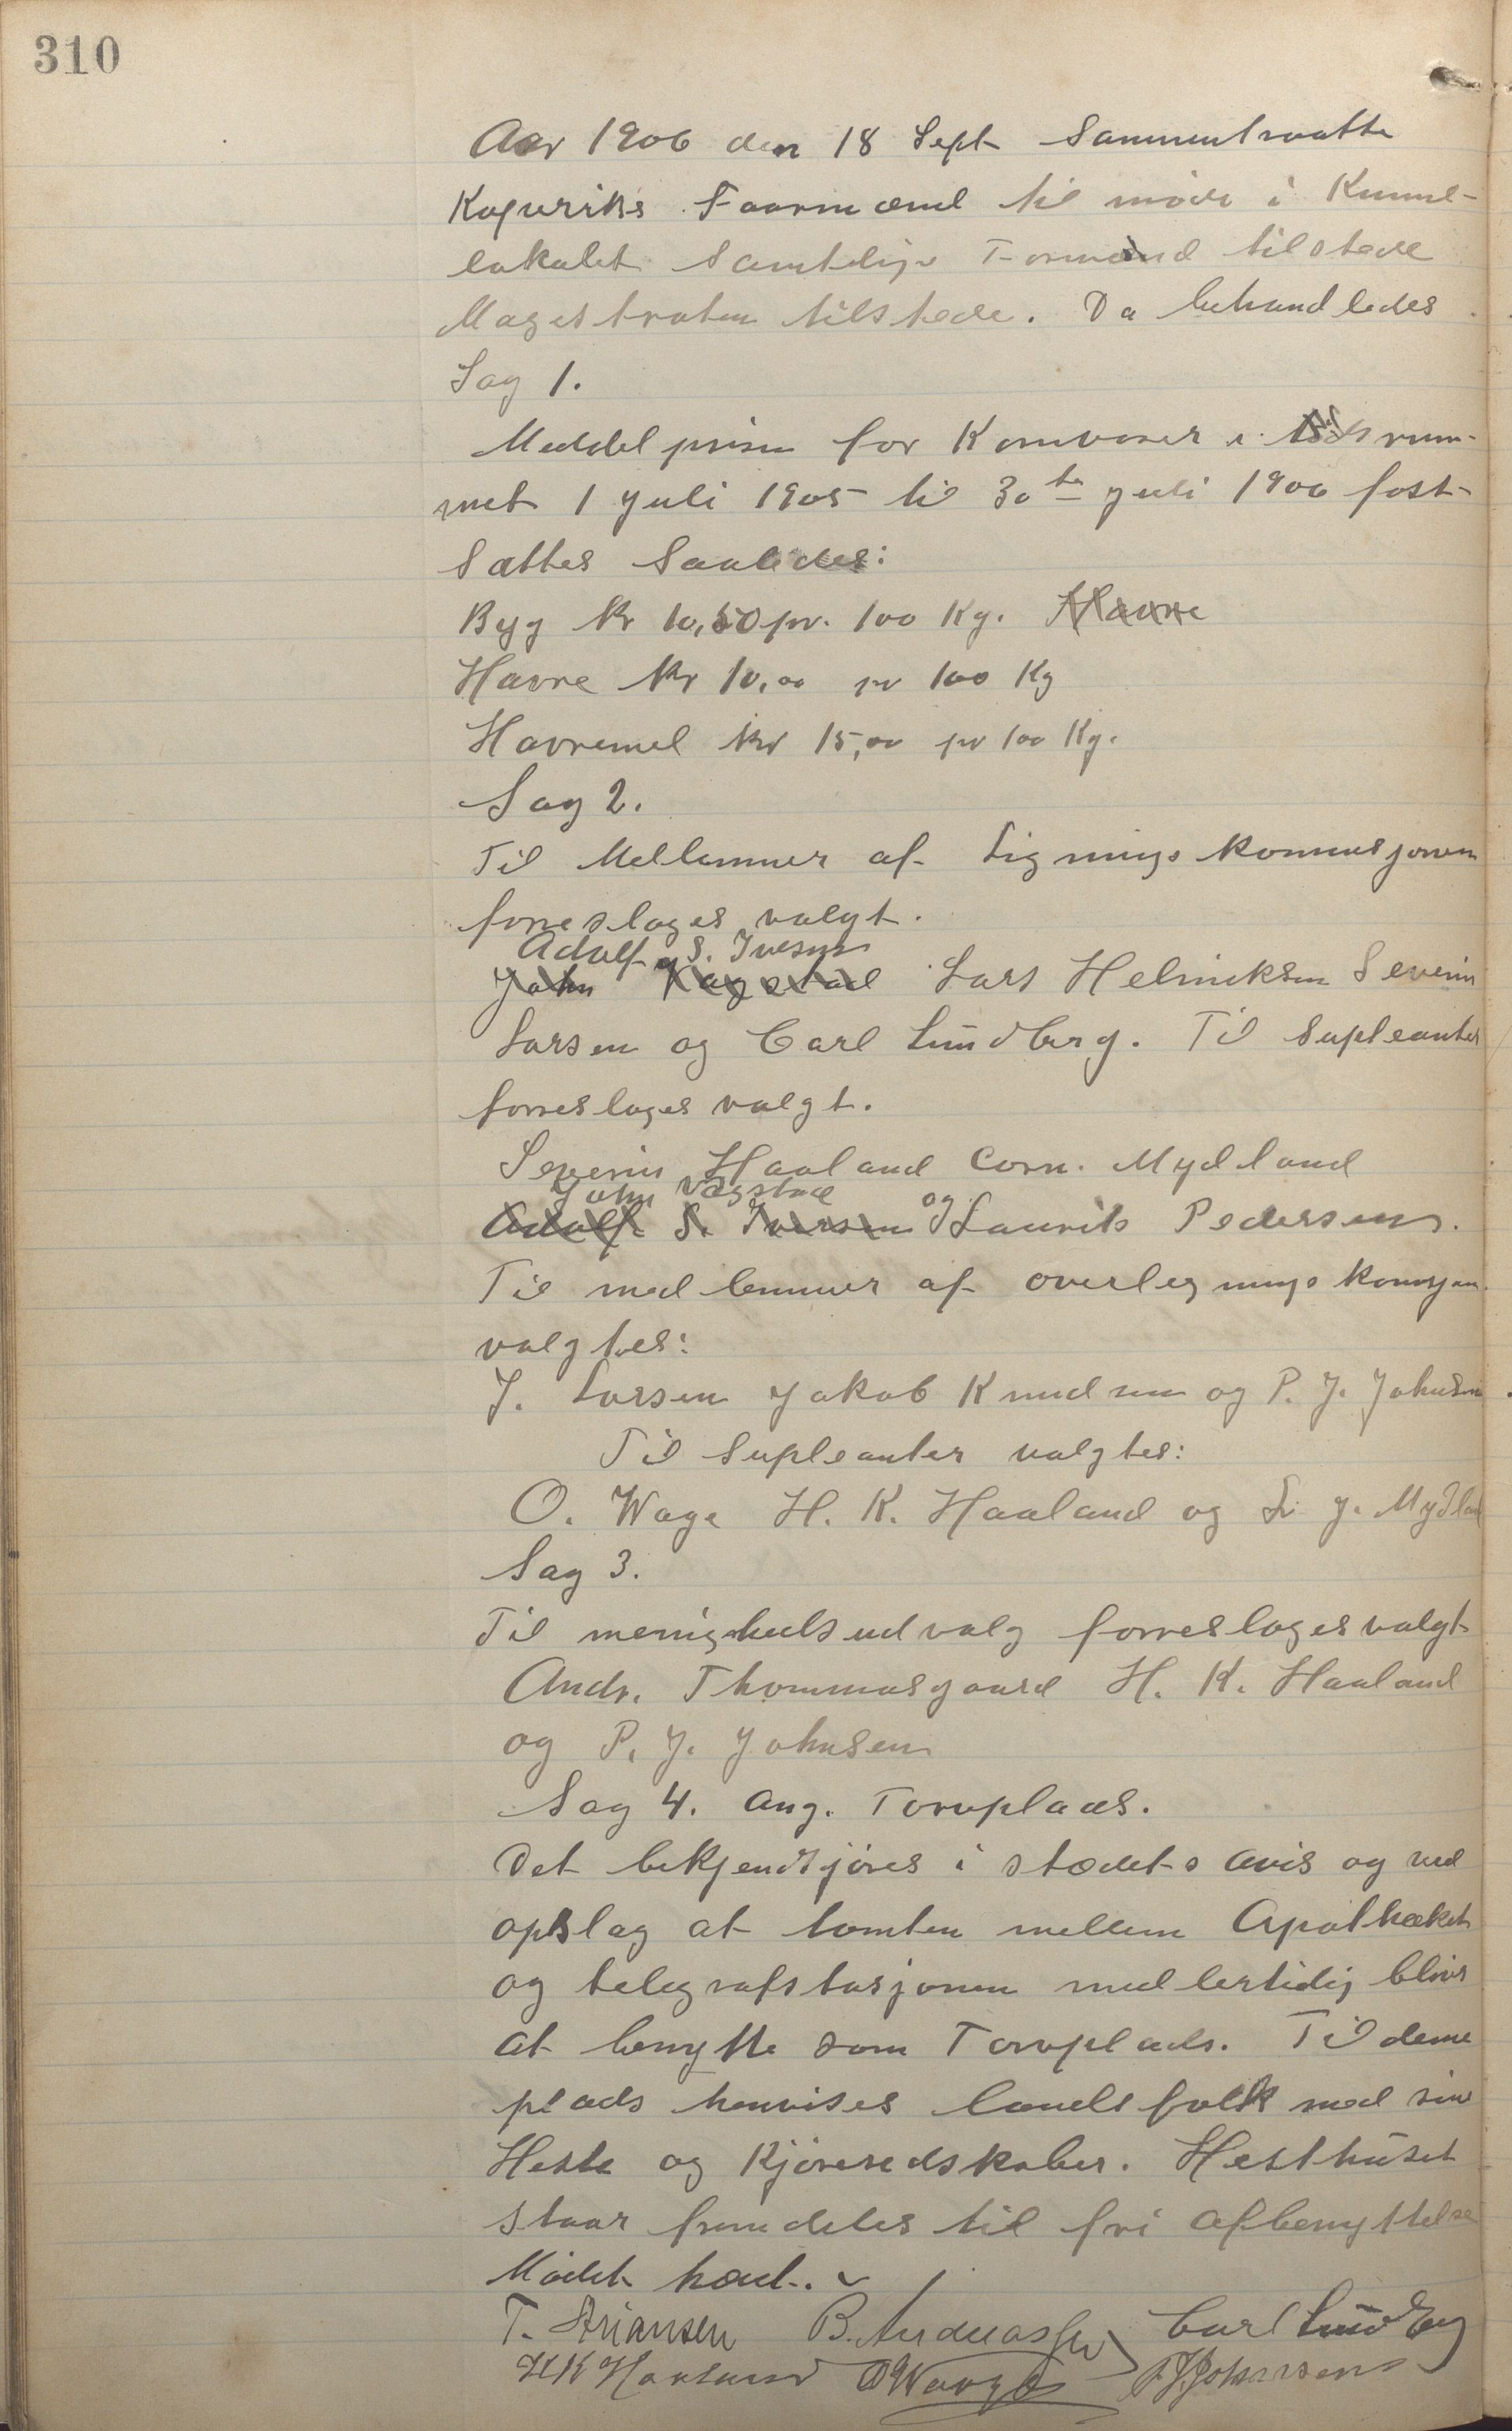 310
Aar 1906 den 18 Sept Sammentraatte
Kopervikks Foormænd til møde i Kumel-
lokalet Samtlige Formænd tilstede
Magestraten tilstede. Da behandledes
Sag 1.
Meddelprisen for Kornvarer i tidsrum-
met 1 Juli 1905 til 30te Juli 1906 fast-
sattes Saaledes:
Byg Kr 10,50 pr. 100 Kg. Havre
Havre Kr 10,00 pr 100 Kg
Havremel Kr 15,00 pr 100 Kg.
Sag 2.
Til Mellemmer af Ligningskommisjonen
forreslages valgt.
Adolf S. Iversen
John Vagstad Lars Helmiksen Severin
Larsen og Carl Lundberg. Til Supleanter
forreslages valgt.
Severin Haaland Corn. Mydland
John Vagstad
Adolf S. Iversen og Laurits Pedersen.
Til medlemmer af overligningskomisjon
valgtes:
J. Larsen Jakob Knudsen og P. J. Johnsen
Til Supleanter valgtes:
O. Wage H. K. Haaland og L. J. Mydland
Sag 3.
Til menighedsudvalg forreslages valgt
Andr. Thommasgaard H. K. Haaland
og P. J. Johnsen
Sag 4. Ang. Torvplads.
Det bekjendtgjøres i stædets avis og ved
opslag at tomten mellem Apotheket
og telegrafstasjonen medlertidig bliver
at benytte som Torvplads. Til denne
plads henvises landsfolk med sine
Heste og Kjøreredskaber. Hesthuset
staar fremdeles til fri afbenyttelse
Mødet hævet.
T. Stiansen B. Andreassen Carl Lundberg
HK Haaland OWaage P. J. Johannsen